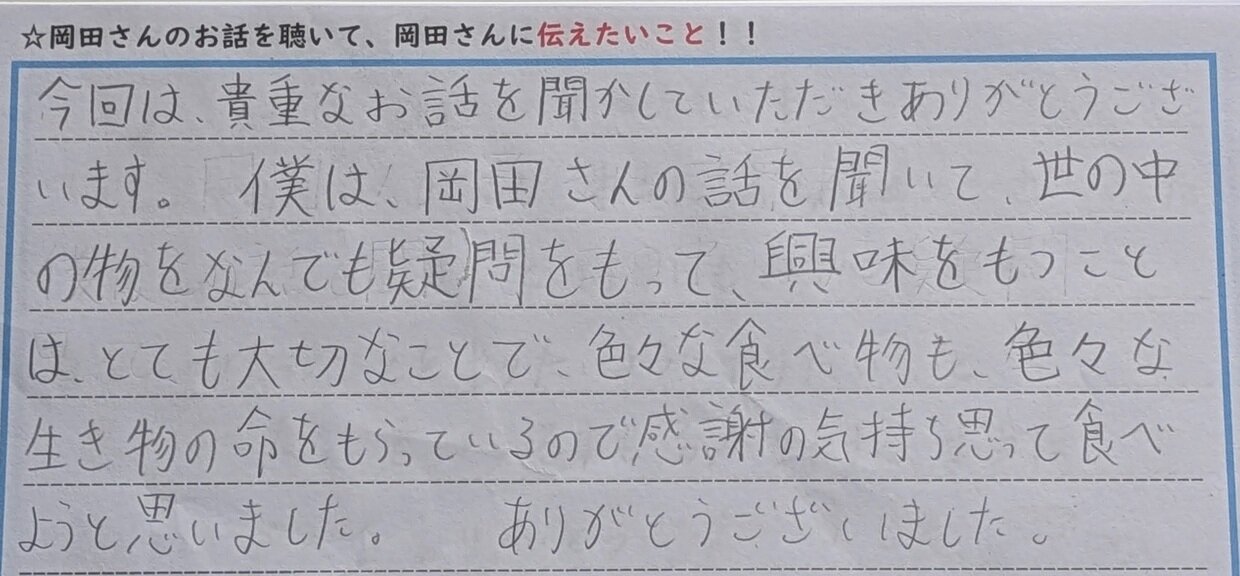 ☆岡田さんのお話を聴いて、岡田さんに伝えたいこと！！
今回は、貴重なお話を聞かしていただきありがとうござ
います。 僕は、岡田さんの話を聞いて、世の中
の物をなんでも疑問をもって、興味をもつこと
は、とても大切なことで、色々な食べ物も、色々な
生き物の命をもらっているので感謝の気持ち思って食べ
ようと思いました。 ありがとうございました。